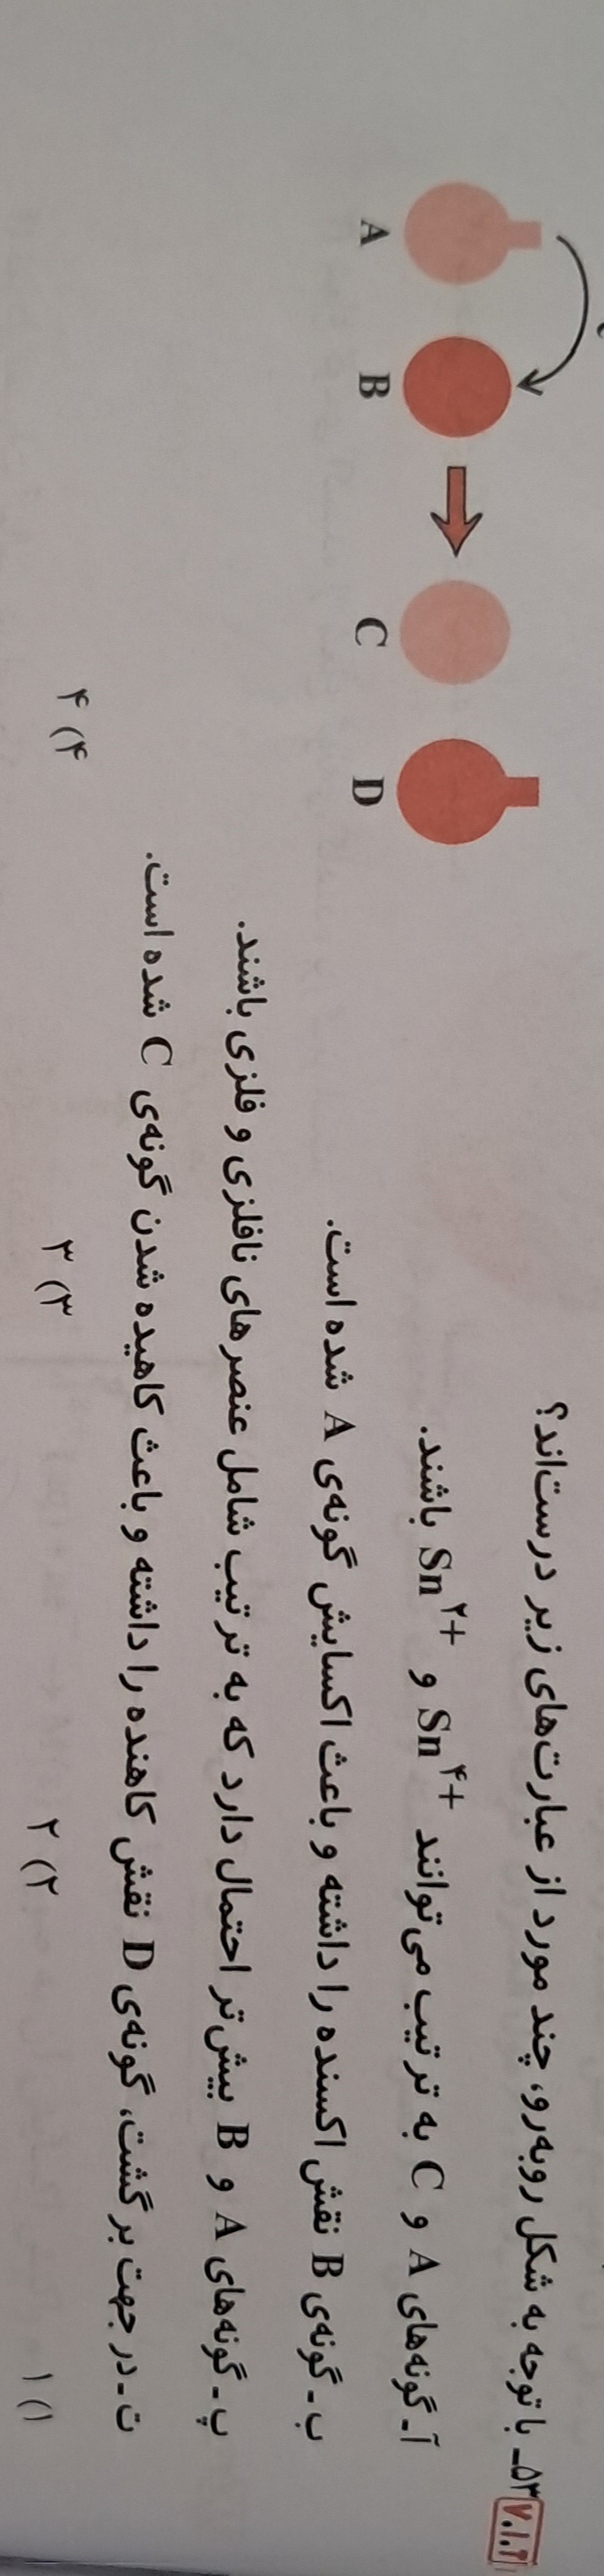 ۵۳_ با توجه به شکل روبه‌رو، چند مورد از عبارت‌های زیر درست‌اند؟
آ_ گونه‌های A و C به ترتیب می‌توانند Sn⁴⁺ و Sn²⁺ باشند.
ب_ گونه‌ی B نقش اکسنده را داشته و باعث اکسایش گونه‌ی A شده است.
پ_ گونه‌های A و B بیش‌تر احتمال دارد که به ترتیب شامل عنصرهای نافلزی و فلزی باشند.
ت_ در جهت برگشت، گونه‌ی D نقش کاهنده را داشته و باعث کاهیده شدن گونه‌ی C شده است.
۱) ۱ ۲) ۲ ۳) ۳ ۴) ۴
A B C D